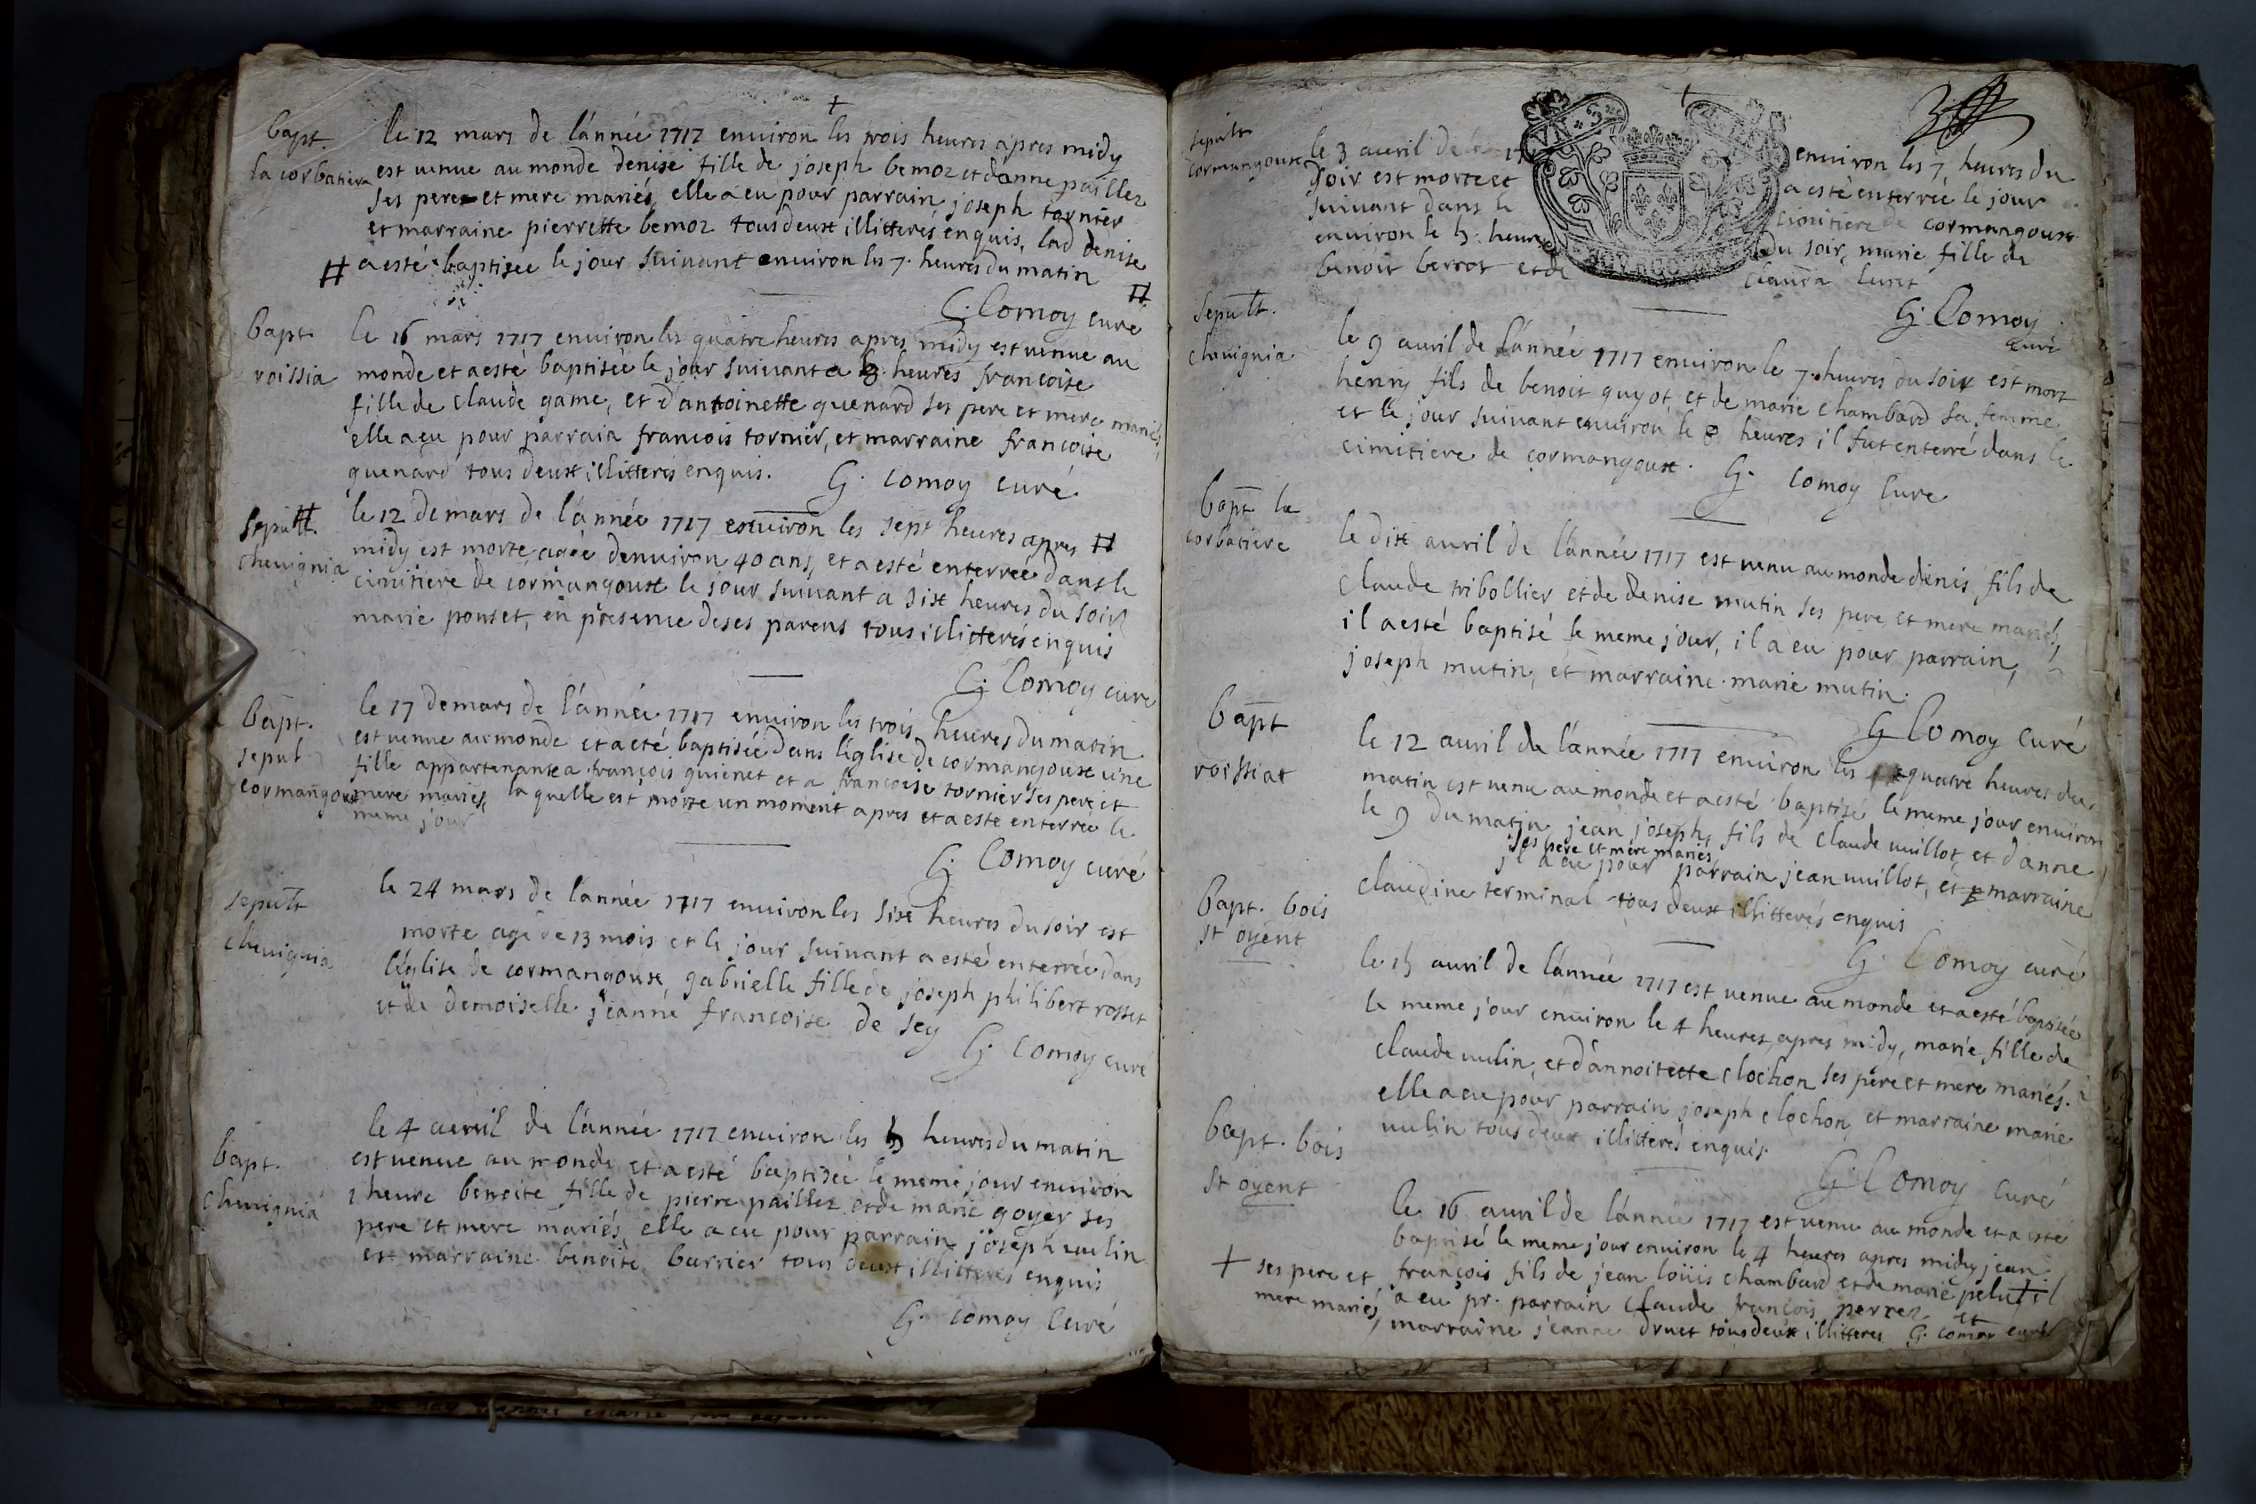 +
bapt.
la corbatiere
le 12 mars de l'année 1717 environ les trois heures apres midy
est venue au monde denise fille de joseph bemoz et danne paillez
ses pere et mere mariés, elle a eu pour parrain joseph tornier
et marraine pierrette bemoz tous deux illitterés enquis, lad denise
# a esté baptisee le jour suivant environ les 7. heures du matin #
G. Comoy curé
bapt.
roissia
le 16 mars 1717 environ les quatre heures apres midy est venue au
monde et a esté baptisée le jour suivant a heures francoise
fille de claude game, et d'antoinette quenard ses pere et mere mariés,
elle a eu pour parrain francois tornier, et marraine francoise
quenard tous deux illitterés enquis. G. Comoy curé
sepult.
chevignia
le 12 de mars de l'année 1717 environ les sept heures apres #
midy est morte agée denviron 40 ans, et a esté enterrée dans le
cimitiere de cormangoux le jour suivant a six heures du soir
marie ponset, en presence de ses parens tous illitterés enquis
G. Comoy curé
bapt.
sepul
cormangoux
le 17 de mars de l'année 1717 environ les trois heures du matin
est venue au monde et a eté baptisée dans l'église de cormangoux une
fille appartenante a françois guienet et a francoise tornier ses pere et
mere mariés, laquelle est morte un moment apres et a este enterrée le
meme jour
G. Comoy curé
sepult
chevignia
le 24 mars de l'année 1717 environ les six heures du soir est
morte agé de 13 mois et le jour suivant a esté enterrée dans
l'église de cormangoux gabrielle fille de joseph philibert rosset
et de demoiselle jeanne françoise de sey G. Comoy curé
bapt.
chevignia
le 4 avril de l'année 1717 environ les 5 heures du matin
est venue au monde et a esté baptisée le meme jour environ
1 heure benoite fille de pierre paillez et de marie goyer ses
pere et mere mariés, elle a eu pour parrain joseph vulin
et marraine benoite barrier tous deux illitterés enquis
G. Comoy curé
+
sepult
cormangoux
le 3 avril de 17 environ les 7 heures du
soir est morte et a esté enterrée le jour
suivant dans le cimitiere de cormangoux
environ le 5. heure du soir, marie fille de
benoit berrot et de
G. Comoy
curé
sepult.
chevignia
le 9 avril de l'année 1717 environ le 7. heures du soir est mort
henry fils de benoit guyot et de marie chambard sa femme
et le jour suivant environ le 8 heures il fut enterré dans le
cimitiere de cormangoux. G. Comoy Curé
bapt la
corbatiere
le dix avril de l'année 1717 est venu au monde denis fils de
claude tribollier et de denise mutin ses pere et mere mariés,
il a esté baptisé le meme jour, il a eu pour parrain,
joseph mutin, et marraine marie mutin.
G Comoy curé
bapt
roissiat
le 12 avril de l'année 1717 environ les quatre heures du
matin est venu au monde et a esté baptisé le meme jour environ
le 9 du matin jean joseph, fils de claude vuillot, et danne
ses pere et mere mariés
il a eu pour parrain jean vuillot, et marraine
claudine terminal tous deux illitterés enquis
G. Comoy curé
bapt. bois
st oyent
le 15 avril de l'année 1717 est venue au monde et a esté baptisée
le meme jour environ le 4 heures apres midy, marie, fille de
claude vulin, et d'annoitette clochon ses pere et mere mariés.
elle a eu pour parrain joseph clochon, et marraine marie
vulin tous deux illitterés enquis.
G. Comoy curé
bapt. bois
st oyent
le 16 avril de l'année 1717 est venu au monde et a esté
baptisé le meme jour environ le 4 heures apres midy jean
françois fils de jean loüis chambard et de marie pelu + il
+ ses pere et
mere mariés,
a eu pr. parrain claude françois perrez et
marraine jeanne druet tous deux illitteres G. Comoy curé